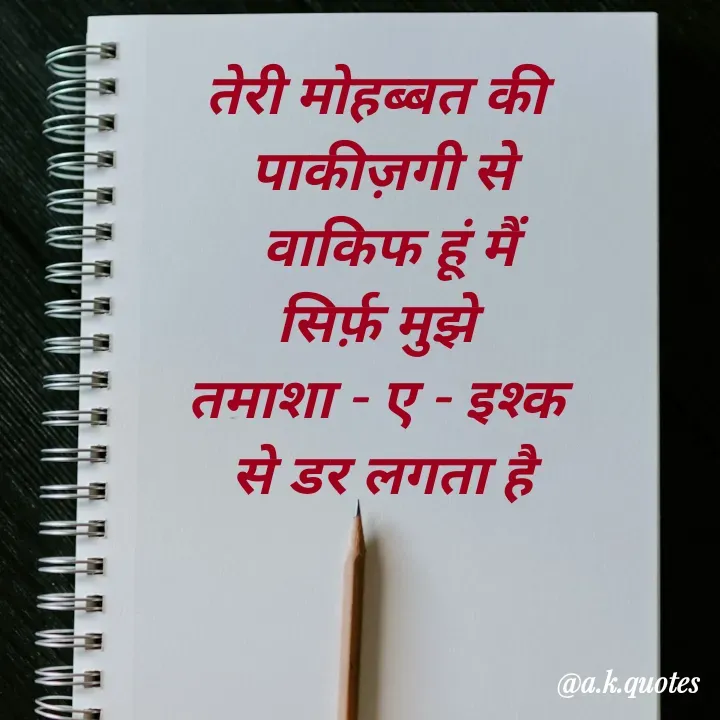 तेरी मोहब्बत की
पाकीज़गी से
वाकिफ हूं मैं
सिर्फ़ मुझे
तमाशा - ए - इश्क
से डर लगता है
@a.k.quotes